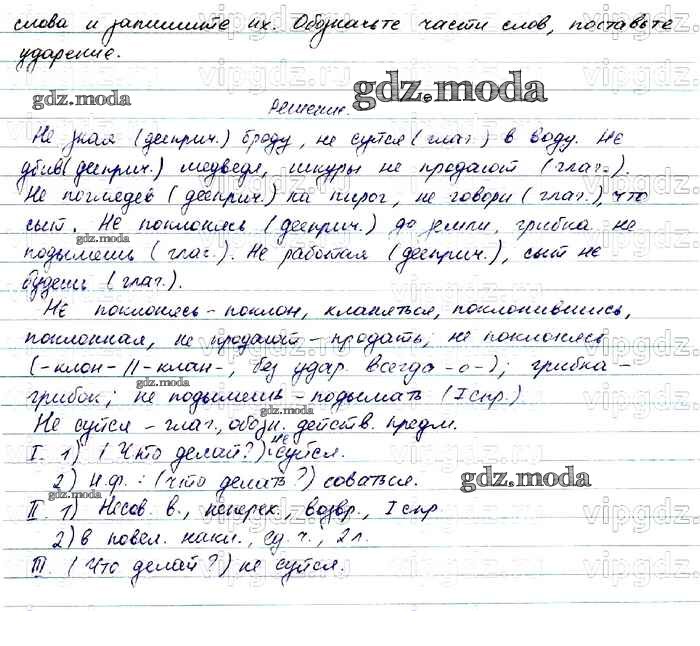 слова и запишите их. Обозначьте части слов, поставьте
ударение.
gdz.moda
gdz.moda
Решение.
Не зная (дееприч.) броду, не суйся (глаг.) в воду. Не
убив (дееприч.) медведя, шкуры не продают (глаг.).
Не поглядев (дееприч.) на пирог, не говори (глаг.), что
сыт. Не поклонясь (дееприч.) до земли, грибка не
gdz.moda
подымешь (глаг.). Не работая (дееприч.), сыт не
будешь (глаг.).
Не поклонясь - поклон, кланяться, поклонившись,
поклонная, не продают - продать; не поклонясь
(-клон-//-клан-, без удар. всегда -о-); грибка -
gdz.moda
грибок; не подымешь - подымать (I спр.)
Не суйся - глаг., обозн. действ. предм.
gdz.moda
I. 1) (Что делай?) не суйся.
2) Н.ф.: (что делать?) соваться.
gdz.moda
II. 1) Несов. в., неперех., возвр., I спр
2) в повел. накл., ед. ч., 2 л.
gdz.moda
III. (Что делай?) не суйся.